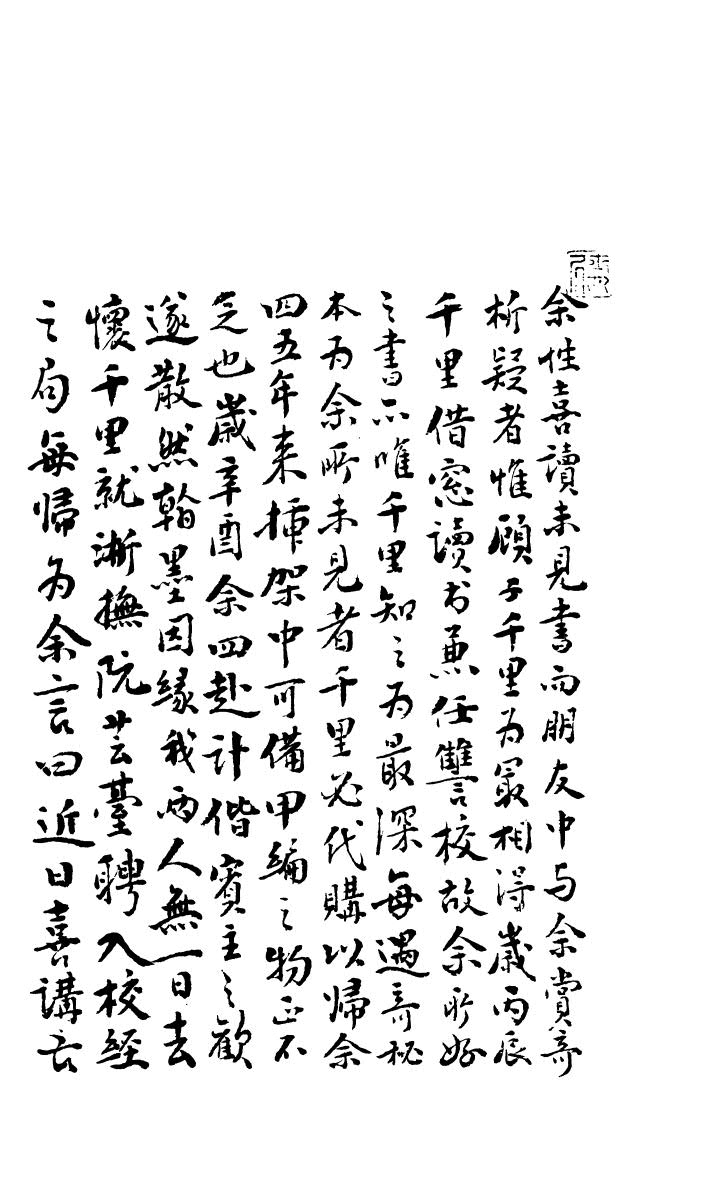 余性喜讀未見書而朋友中与余賞奇
析疑者惟顧子千里为冣相淂歲丙辰
千里借窓讀书兼任讐校故余所好
之書亦唯千里知之为最深每遇奇秘
本为余所未見者千里必代購以歸余
四五年来插架中可備甲編之物正不
乏也歲辛酉余四赴計偕賓主之歡
遂散然翰墨因緣我兩人無一日去
懷千里就浙撫阮芸臺聘入校經
之局每歸为余言曰近日喜講古